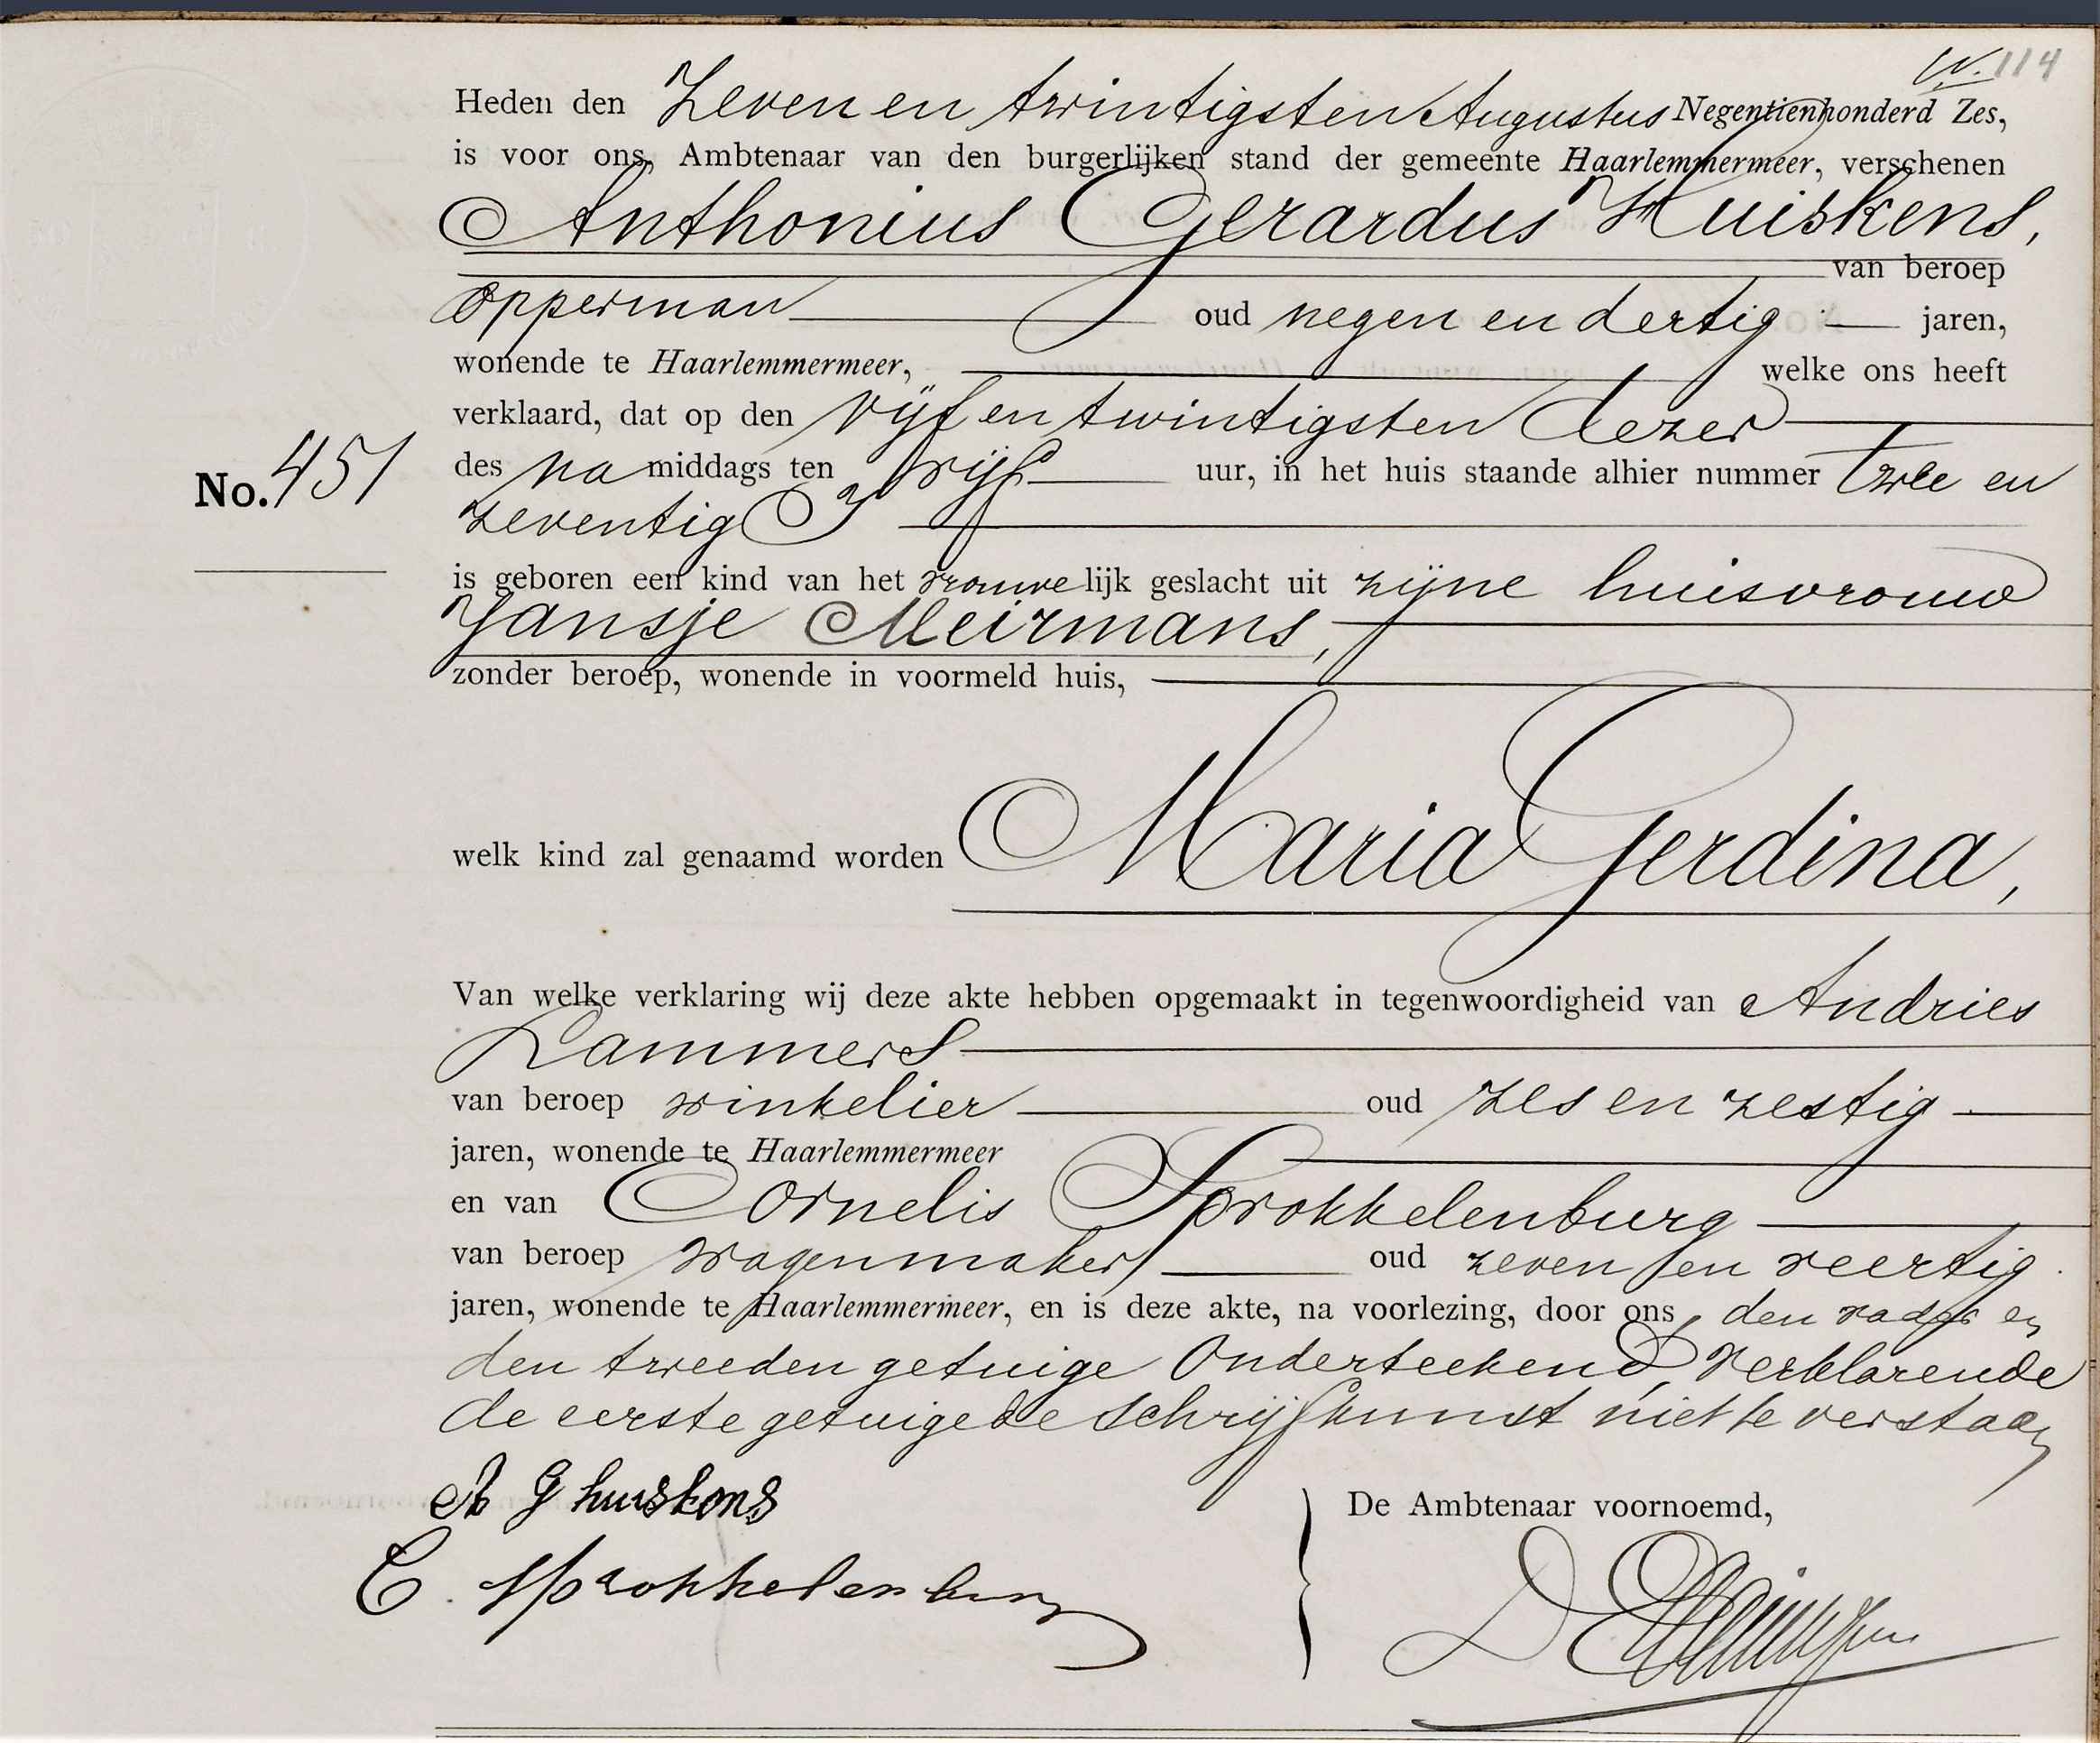 114
Heden den Zeven en twintigsten Augustus Negentienhonderd Zes,
is voor ons, Ambtenaar van den burgerlijken stand der gemeente Haarlemmermeer, verschenen
Anthonius Gerardus Huiskens,
van beroep
opperman oud negen en dertig jaren,
wonende te Haarlemmermeer, welke ons heeft
verklaard, dat op den vijf en twintigsten dezer
des na middags ten vijf uur, in het huis staande alhier nummer twee en
No. 451
zeventig
is geboren een kind van het vrouwe lijk geslacht uit zijne huisvrouw
Jansje Meirmans,
zonder beroep, wonende in voormeld huis,
welk kind zal genaamd worden Maria Gerdina,
Van welke verklaring wij deze akte hebben opgemaakt in tegenwoordigheid van Andries
Lammers
van beroep winkelier oud zes en zestig
jaren, wonende te Haarlemmermeer
en van Cornelis Sprokkelenburg
van beroep wagenmaker oud zeven en veertig
jaren, wonende te Haarlemmermeer, en is deze akte, na voorlezing, door ons, den vader en
den tweeden getuige Onderteekend, verklarende
de eerste getuige de schrijfkunst niet te verstaan
A G huiskens
De Ambtenaar voornoemd,
C. Sprokkelenburg